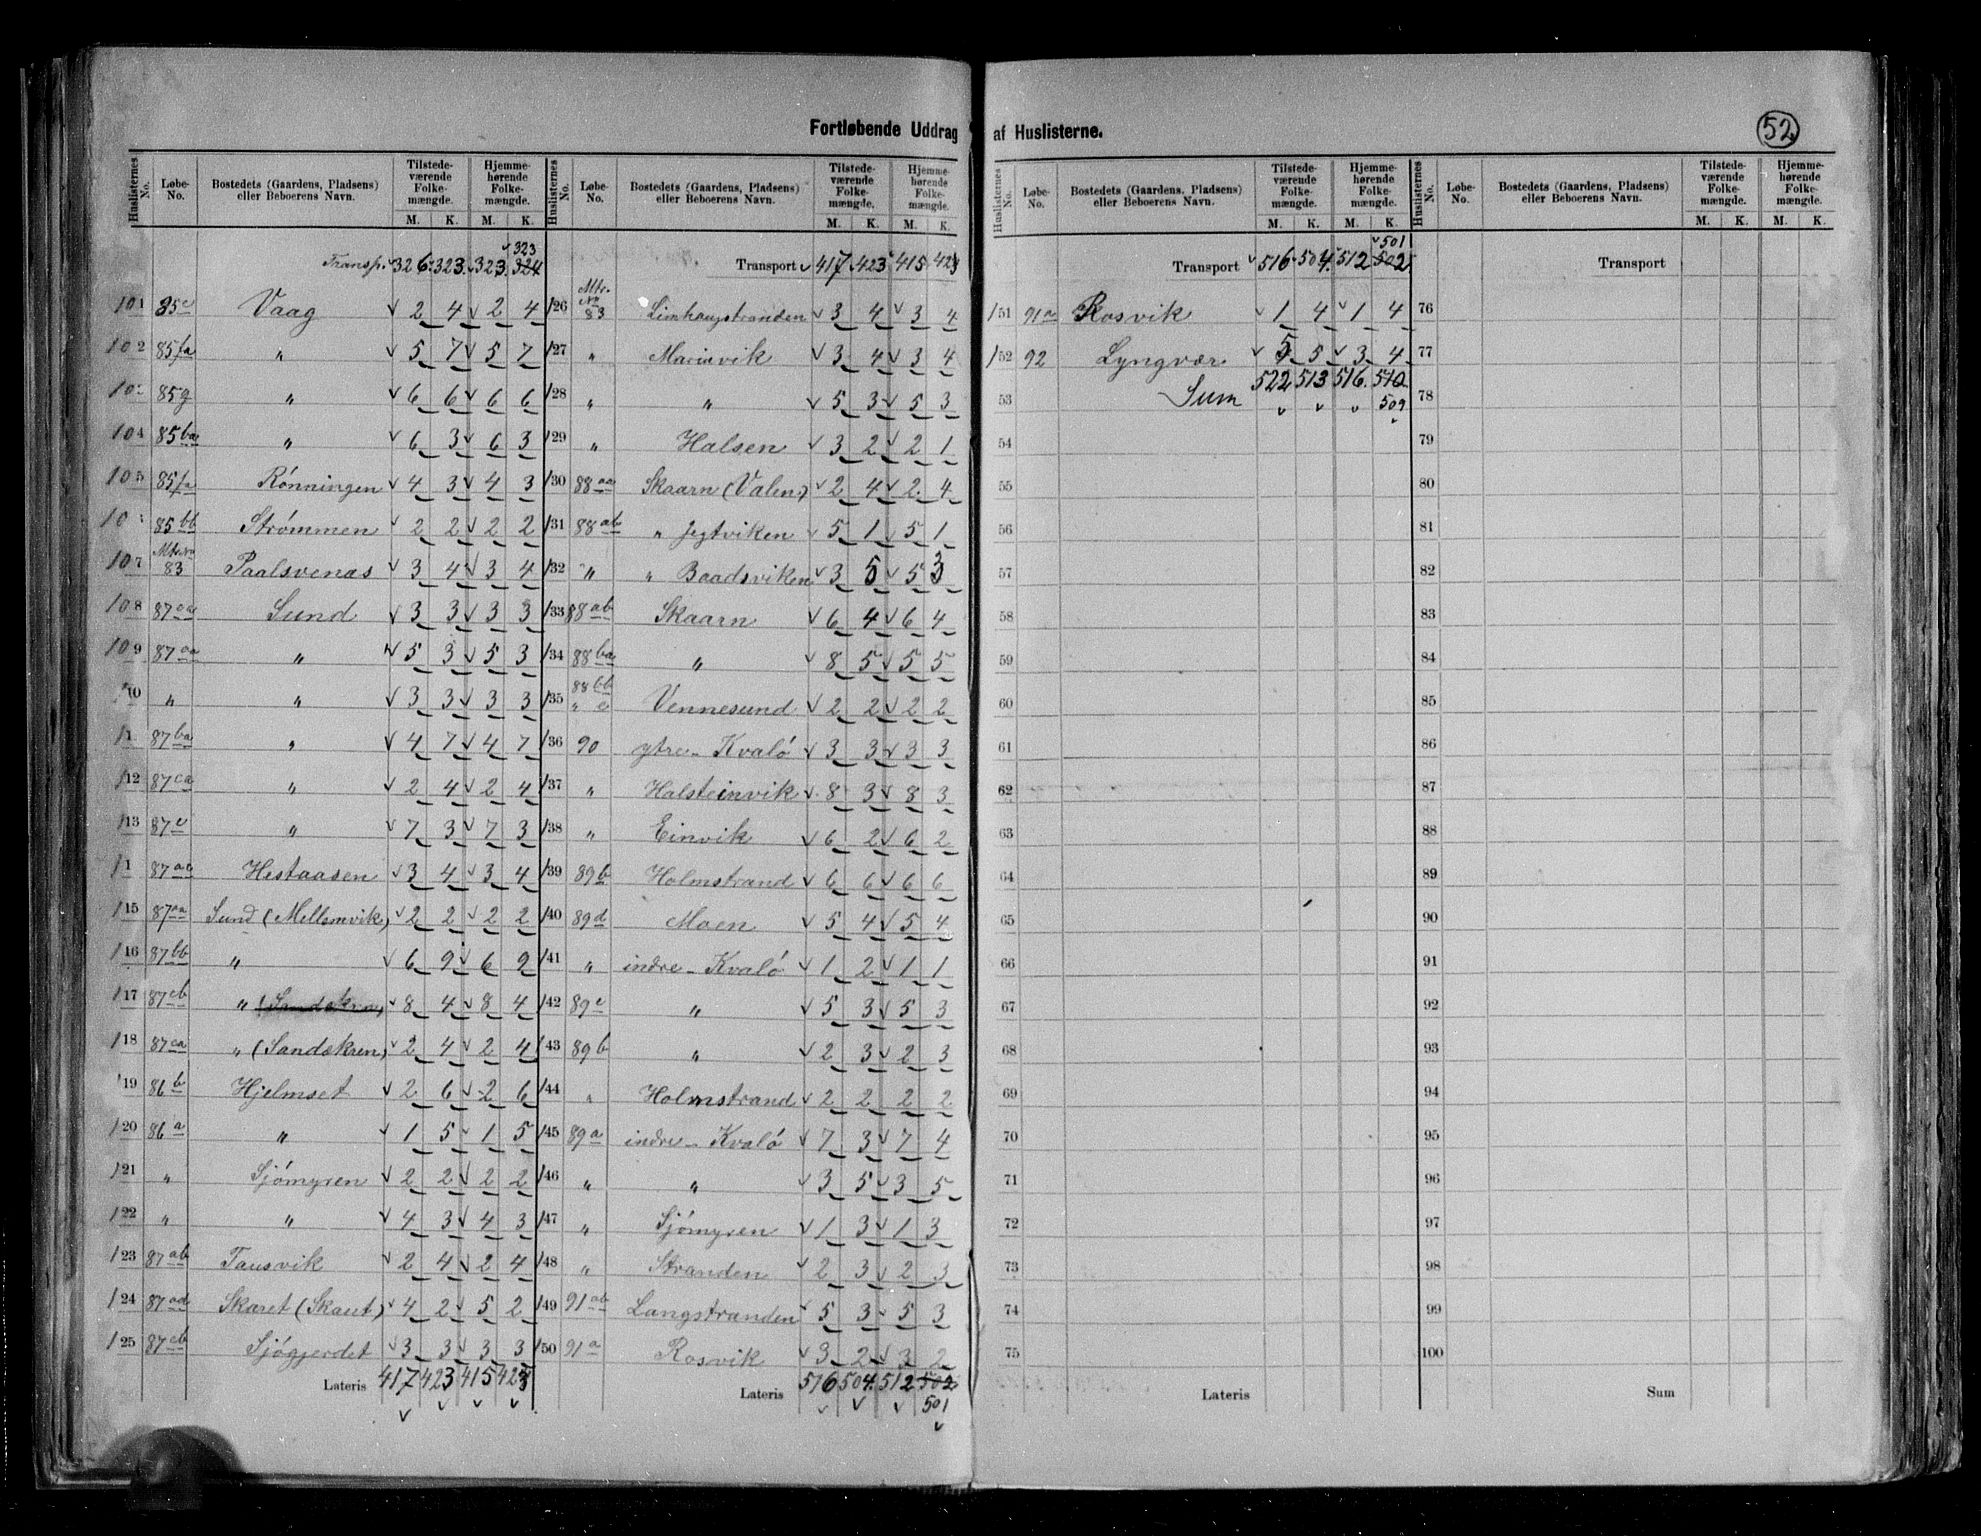 Fortløbende Uddrag af Huslisterne.
52
Huslisternes No. Løbe-No. Bostedets (Gaardens, Pladsens) eller Beboerens Navn. Tilstedeværende Folkemængde. M. K. Hjemmehørende Folkemængde. M. K.
323
Transp. 326 323 323 324
101 85c Vaag 2 4 2 4
102 85fa " 5 7 5 7
10 85g " 6 6 6 6
104 85ba " 6 3 6 3
105 85fa Rónningen 4 3 4 3
10 85bb Strømmen 2 2 2 2
107 Mtr. No 83 Paalsvenås 3 4 3 4
108 87aa Sund 3 3 3 3
109 87aa " 5 3 5 3
110 " " 3 3 3 3
11 87ba " 4 7 4 7
112 87ca " 2 4 2 4
113 87c " 7 3 7 3
11 87ac Hestaasen 3 4 3 4
115 87aa Sund (Mellemvik) 2 2 2 2
116 87bb " 6 9 6 9
117 87cb " 8 4 8 4
118 87ca " (Sandskren) 2 4 2 4
119 86b Hjelmset 2 6 2 6
120 86a " 1 5 1 5
121 " Sjómyren 2 2 2 2
122 " " 4 3 4 3
123 87ab Tausvik 2 4 2 4
124 87ad Skaret (Skaret) 4 2 5 2
125 87cb Sjógjerdet 3 3 3 3
Lateris 417 423 415 423
Huslisternes No. Løbe-No. Bostedets (Gaardens, Pladsens) eller Beboerens Navn. Tilstedeværende Folkemængde. M. K. Hjemmehørende Folkemængde. M. K.
Transport 417 423 415 423
126 Mtr. No 83 Limhaugstranden 3 4 3 4
127 " Marinvik 3 4 3 4
128 " " 5 3 5 3
129 " Halsen 3 2 2 1
130 88aa Skaarn (Valen) 2 4 2 4
131 88ab " Jegtviken 5 1 5 1
132 " " Baadsviken 3 5 5 3
133 88ab Skaarn 6 4 6 4
134 88ba " 8 5 5 5
135 88bb " c Vennesund 2 2 2 2
136 90 ytre - Kvaló 3 3 3 3
137 " Halsteinvik 8 3 8 3
138 " Einvik 6 2 6 2
139 89b Holmstrand 6 6 6 6
140 89d Moen 5 4 5 4
141 " indre - Kvaló 1 2 1 1
142 89c " 5 3 5 3
143 89b " 2 3 2 3
144 " Holmstrand 2 2 2 2
145 89a indre - Kvaló 7 3 7 4
146 " " 3 5 3 5
147 " Sjómyren 1 3 1 3
148 " Stranden 2 3 2 3
149 91ab Langstranden 5 3 5 3
150 91a Rosvik 3 2 3 2
Lateris 516 504 512 502
501
Huslisternes No. Løbe-No. Bostedets (Gaardens, Pladsens) eller Beboerens Navn. Tilstedeværende Folkemængde. M. K. Hjemmehørende Folkemængde. M. K.
501
Transport 516 504 512 502
151 91a Rosvik 1 4 1 4
152 92 Lyngvær 5 5 3 4
Sum 522 513 516 510
53 509
54
55
56
57
58
59
60
61
62
63
64
65
66
67
68
69
70
71
72
73
74
75
Lateris
Huslisternes No. Løbe-No. Bostedets (Gaardens, Pladsens) eller Beboerens Navn. Tilstedeværende Folkemængde. M. K. Hjemmehørende Folkemængde. M. K.
Transport
76
77
78
79
80
81
82
83
84
85
86
87
88
89
90
91
92
93
94
95
96
97
98
99
100
Sum